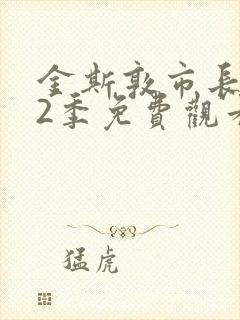 金斯敦市長
2季免費觀看
猛虎